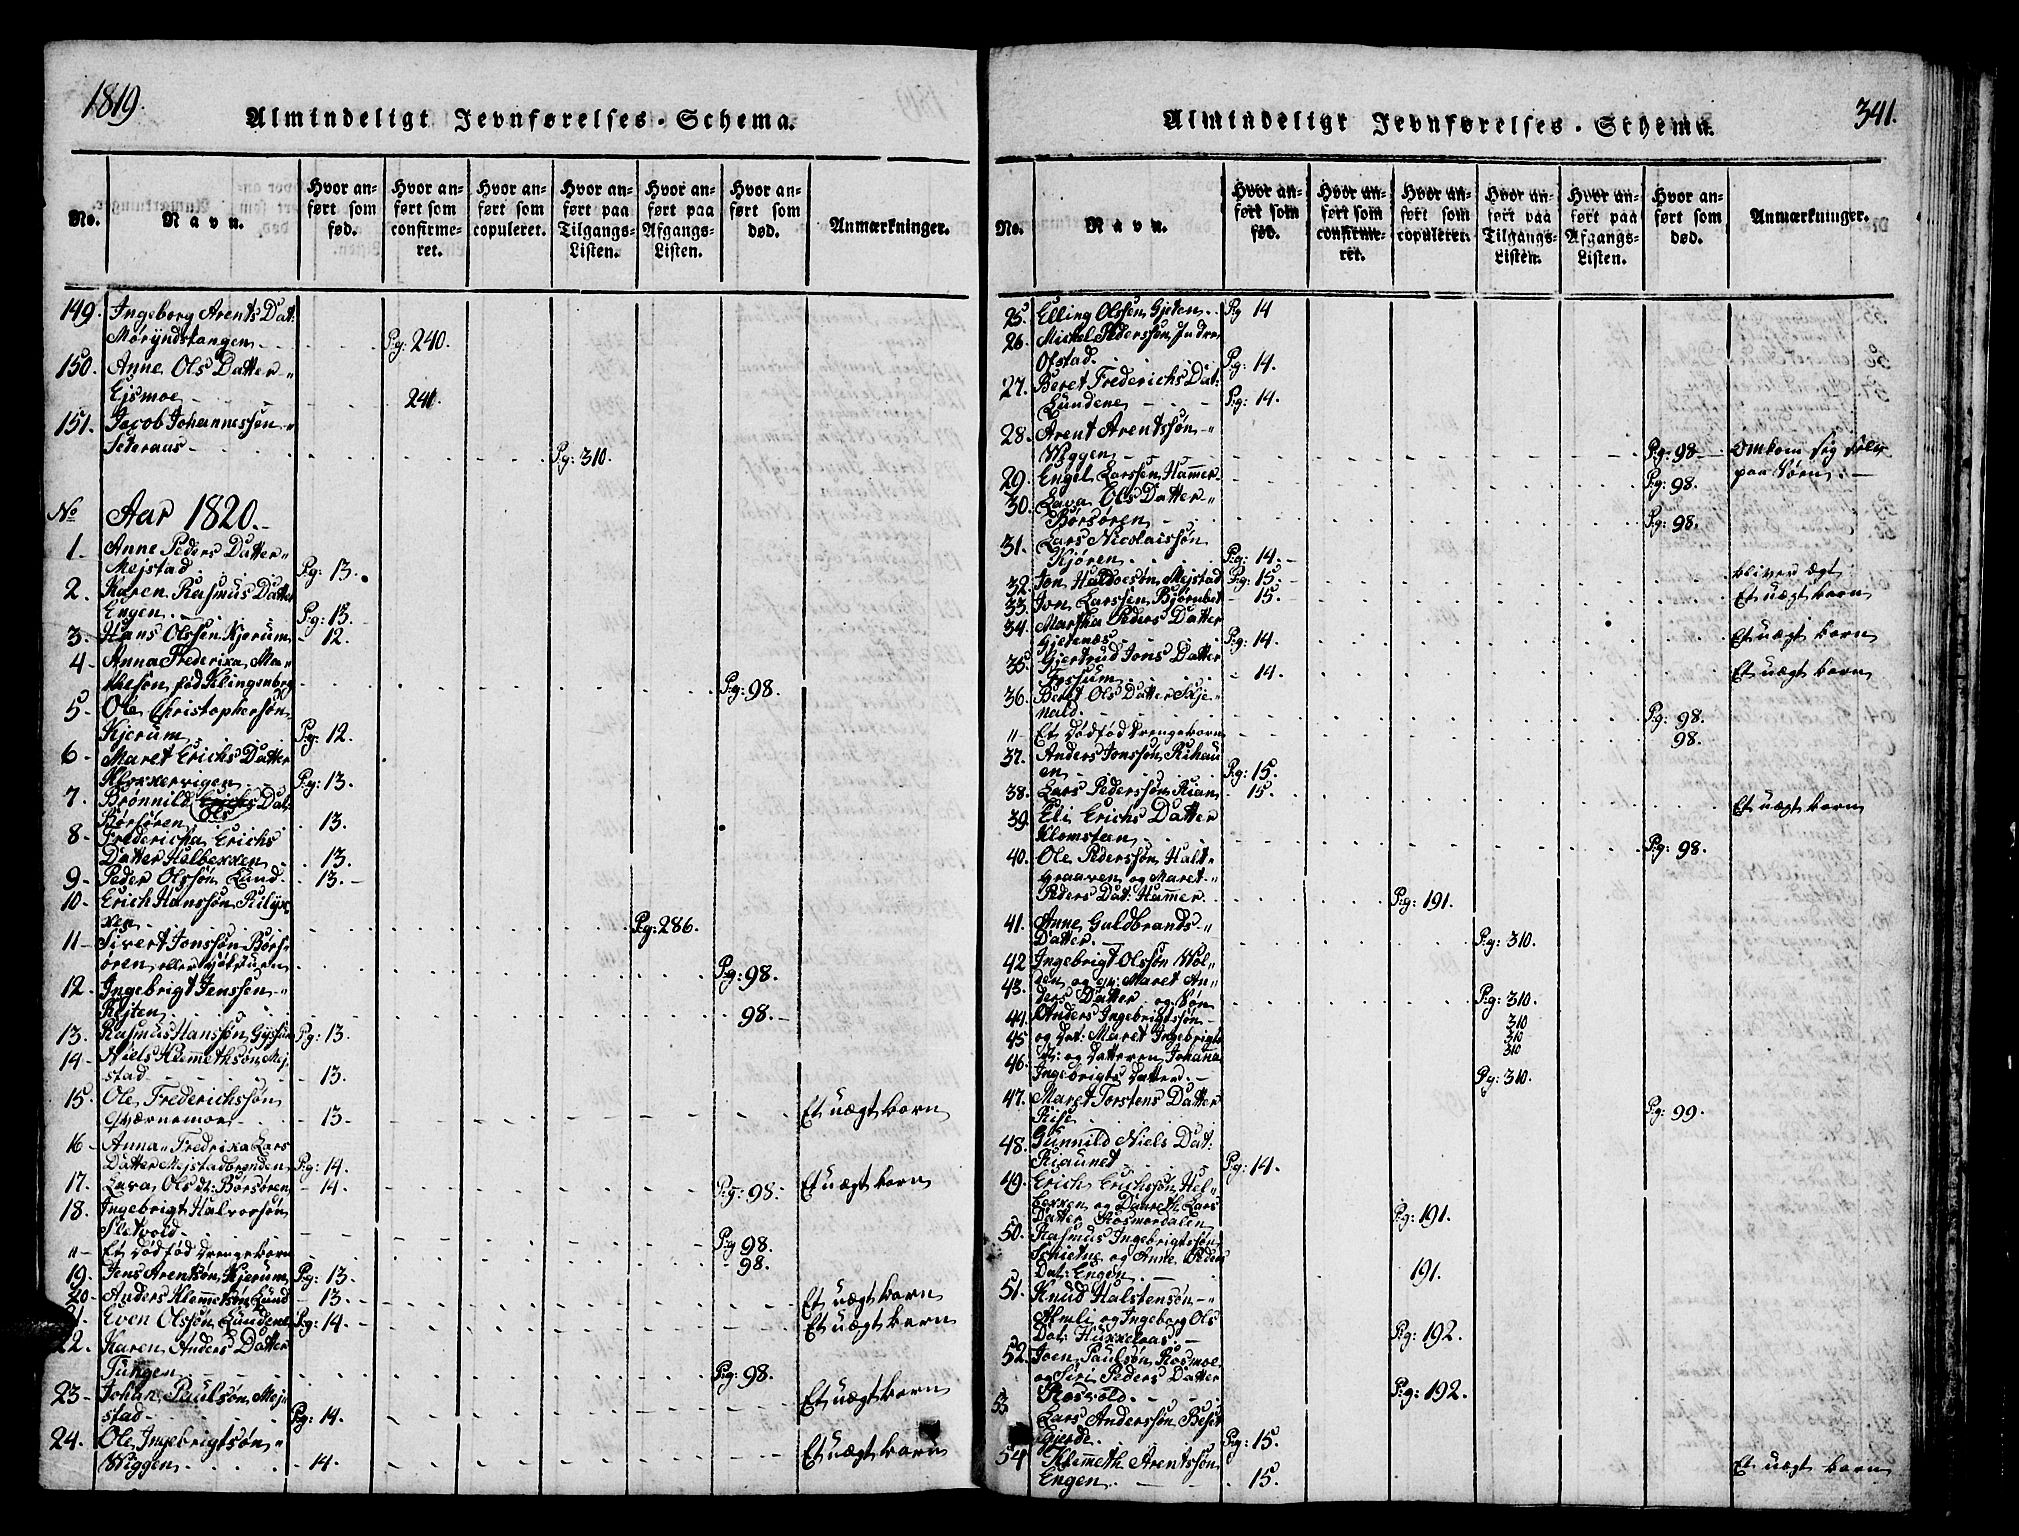 1819.
Almindeligt Jevnførelses-Schema.
No.
Navn.
Hvor an-
ført som
fød.
Hvor an-
ført som
confirme-
ret.
Hvor an-
ført som
copuleret.
Hvor an-
ført paa
Tilgangs-
Listen.
Hvor an-
ført paa
Afgangs-
Listen.
Hvor an-
ført som
død.
Anmærkninger.
149. Ingeborg Arents Dat:
Pg. 240.
150. Anne Ols Datter
Ejsmoe 241.
151. Jacob Johannessen
Pg: 310.
No Aar 1820.
1. Anne Peders Datter
Mejstad Pg: 13.
2. Karen Rasmus Datter
Engen Pg: 13.
3. Hans Olssen Kjerum - 12.
4 Anna Frederika Ma-
thesøn fød Klingenberg Pg: 98.
5. Ole Christophersøn
Kjerum Pg: 12.
6 Maret Erichs Datter
Klokkervigen Pg: 13.
7. Brønnild Erichs Dat:
Ols
Børsøren 13.
8 Fredericha Erichs
Datter Helbekken 13.
9 Peder Olssøn Lund 13.
10. Erich Hanssøn
Pg: 286.
11 Sivert Jonssøn Børs-
øren eller Pg: 98.
12. Ingebrigt Jenssen
98.
13. Rasmus Hanssøn Pg: 13.
14 Niels Klemmethsøn Mej-
stad 13.
15. Ole Frederichssøn
13. Et uægt barn
16 Anna Fredrika Lars
Datter Mejstadbrenden Pg: 14.
17. Lava Ols dt: Børsøren - 14. Pg: 98. Et uægt barn
18. Ingebrigt Halvorsøn
Sletvold Pg 98.
" Et dødfød drengebarn 98.
19. Jens Arentsøn Kjerum Pg: 13.
20 Anders Klemmetsøn Lund - 13. Et uægt barn
21. Even Olssøn Lundene Pg: 14. Et uægt barn
22. Karen Anders Datter
Tungen Pg: 98.
23 Johan Paulsøn Mej-
stad Pg: 14. Et uægt barn
24. Ole Ingebrigtsøn
Wiggen - 14. Et uægt barn
341.
Almindeligt Jevnførelses-Schema.
No.
Navn.
Hvor an-
ført som
fød.
Hvor an-
ført som
confirme-
ret.
Hvor an-
ført som
copuleret.
Hvor an-
ført paa
Tilgangs-
Listen.
Hvor an-
ført paa
Afgangs-
Listen.
Hvor an-
ført som
død.
Anmærkninger.
25. Elling Olssen Pg 14
26. Michel Pederssøn Indre
Ofstad Pg: 14.
27. Beret Frederichs Dat:
Lundene Pg: 14.
28. Arent Arentssøn
Wiggen Pg: 98 Omkom sig selv
29. Engel Larssen Hammer Pg: 98. paa Søen.
30. Lava Ols Datter
Børsøren Pg: 98.
31. Lars Nicolaissøn
Kjøren Pg: 14.
32. Jon Haldorsøn Mejstad Pg: 15. bliver ægt
33. Jon Larssen - 15. Et uægt barn
34. Martha Peders Datter
Gjetenæs Pg: 14. Et uægt barn
35. Gjertrud Jons Datter
Fossum - 14. Et uægt barn
36. Beret Ols Datter Skje-
nald Pg: 98.
" Et dødfød drengebarn 98.
37. Anders Jonssøn
en Pg: 15.
38. Lars Pederssøn Rian - 15. Et uægt barn
39. Eli Erichs Datter
Klomsteen Pg: 98.
40. Ole Pederssøn Halt-
graaven og Maret
Peders Dat: Hammer Pg: 191.
41. Anne Guldbrands
Datter Pg: 310.
42 Ingebrigt Olssøn Wol-
den og Maret An-
43. ders Datter og Søn Pg: 310.
44. Anders Ingebrigtssøn 310
45 og Dat: Maret Ingebrigts 310
46. dt: og datteren Johanna 310
Ingebrigts Datter Pg: 310.
47. Maret Torstens Datter
Rise Pg: 99.
48. Gunnild Niels Dat:
Riaunet Pg: 14.
49. Erich Erichssøn Hel-
bekken og Daareth Lars
Datter Rosmerdalen Pg: 191.
50. Rasmus Ingebrigtssøn
og Anne Peders
Dat: Engen 191.
51. Knud Halstensøn
Almli og Ingeborg Ols
Dat: Pg: 192.
52. Joen Paulsøn Rosmoe
og Siri Peders Datter
Rosvold Pg: 192.
53 Lars Anderssøn
gjerde Pg: 15.
54 Klemmeth Arentssøn
Engen 15. Et uægt barn